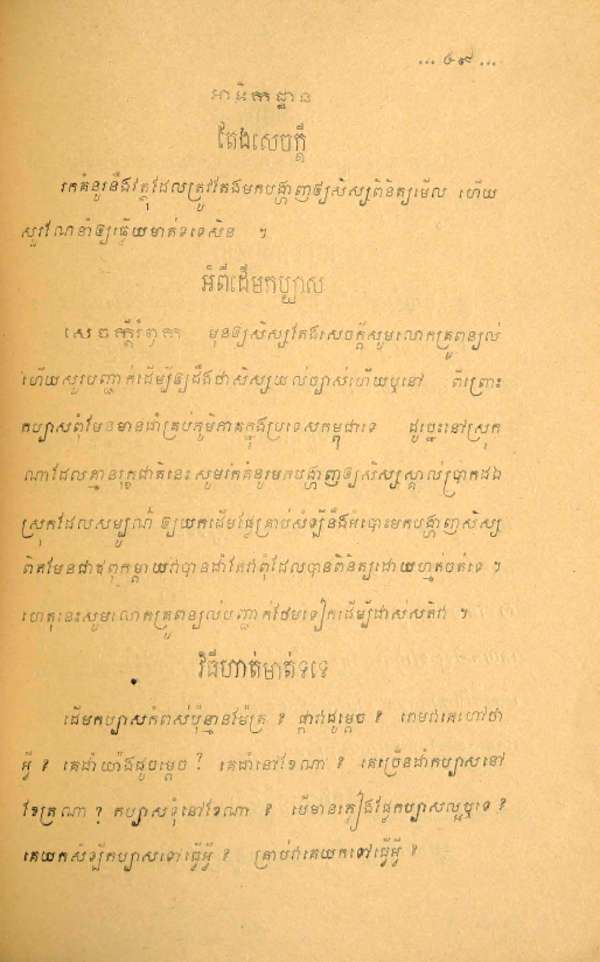 ... ៤៩ ...
អាធិកដ្ឋាន
តែងសេចក្ដី
រកគំនូរនឹងវត្ថុដែលត្រូវតែងមកបង្ហាញឲ្យសិស្សពិនិត្យមើល ហើយ
សួរណែនាំឲ្យឆ្លើយមាត់ទទេសិន ។
អំពីដើមកប្បាស
សេចក្ដីរំឭក មុនឲ្យសិស្សតែងសេចក្ដីសូមលោកគ្រូពន្យល់
ហើយសួរបញ្ជាក់ដើម្បីឲ្យដឹងថាសិស្សយល់ច្បាស់ហើយឬនៅ ពីព្រោះ
កប្បាសពុំមែនមានដាំគ្រប់ភូមិភាគក្នុងប្រទេសកម្ពុជាទេ ដូច្នេះនៅស្រុក
ណាដែលគ្មានរុក្ខជាតិនេះ សូមរកគំនូរមកបង្ហាញឲ្យសិស្សស្គាល់ប្រាកដឯ
ស្រុកដែលសម្បូណ៌ ឲ្យយកដើមផ្លែគ្រាប់សំឡីនឹងអំបោះមកបង្ហាញសិស្ស
ពិតមែនជាឪពុកម្ដាយវាបានដាំតែវាពុំដែលបានពិនិត្យដោយហ្មត់ចត់ទេ ។
ហេតុនេះសូមលោកគ្រូពន្យល់បញ្ជាក់ថែមទៀតដើម្បីដាស់សតិវា ។
វិធីហាត់មាត់ទទេ
ដើមកប្បាសកំពស់ប៉ុន្មានម៉ែត្រ ? ផ្កាវាដូម្ដេច ? រោមវាគេហៅថា
អ្វី ? គេដាំយ៉ាងដូចម្ដេច ? គេដាំនៅខែណា ? គេច្រើនដាំកប្បាសនៅ
ខែត្រណា ? កប្បាសទុំនៅខែណា ? បើមានភ្លៀងផ្លែកប្បាសល្អឬទេ ?
គេយកសំឡីកប្បាសទៅធ្វើអ្វី ? គ្រាប់វាគេយកទៅធ្វើអ្វី ?